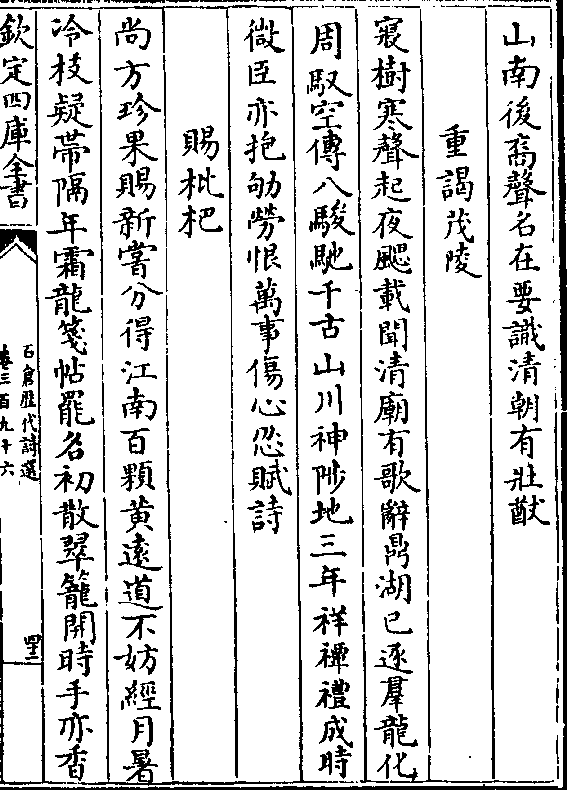 山南後裔聲名在要識清朝有壯猷
重謁茂陵
寢樹寒聲起夜颸載聞清廟有歌辭鼎湖已逐羣龍化
周馭空傳八駿馳千古山川神陟地三年祥禫禮成時
微臣亦抱劬勞恨萬事傷心忍賦詩
賜枇杷
尚方珍果賜新嘗分得江南百顆黃遠道不妨經月暑
冷枝疑帶隔年霜龍箋帖罷名初散翠籠開時手亦香
欽定四庫全書
石倉歷代詩選
卷三百九十六